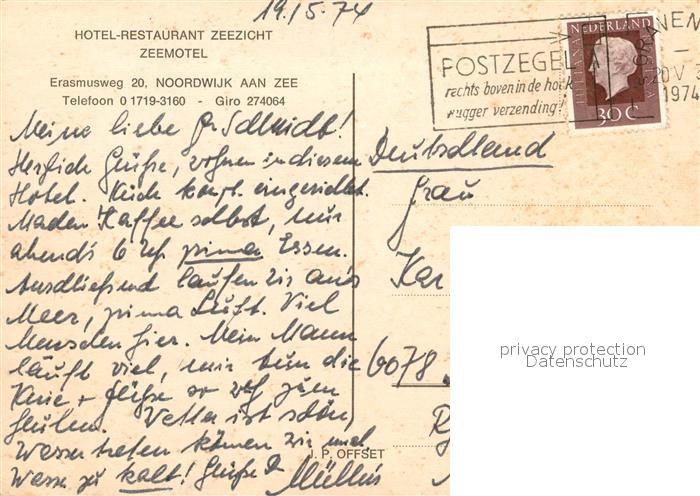 19.5.74
HOTEL-RESTAURANT ZEEZICHT
ZEEMOTEL
Erasmusweg 20, NOORDWIJK AAN ZEE
Telefoon 0 1719-3160 - Giro 274064
POSTZEGEL
rechts boven in de hoek
vugger verzending!
NEDERLAND
JULIANA
30 C
20 V
1974
Meine liebe Fr. Schmidt!
Herzlich Grüße, wohnen in diesem
Hotel. Küch kompl. eingerichtet.
Machen Kaffee selbst, nur
abends 6 Uhr prima Essen.
Anschließend laufen wir ans
Meer, prima Luft. Viel
Menschen hier. Mein Mann
läuft viel, mir tun die
Knie + Füße so weh zum
heulen. Wetter ist schön,
Wassertreten können wir nicht
Wasser zu kalt! Grüße
Müllers
Deutschland
Frau
Kar
6078
J. P. OFFSET
privacy protection
Datenschutz